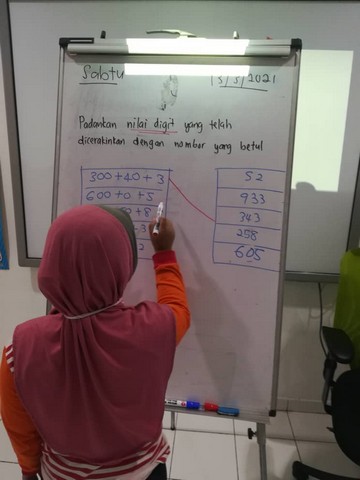 Sabtu
15/5/2021
Padankan nilai digit yang telah
dicerakinkan dengan nombor yang betul
300 + 40 + 3
600 + 0 + 5
+ 8
3
2
52
933
343
258
605